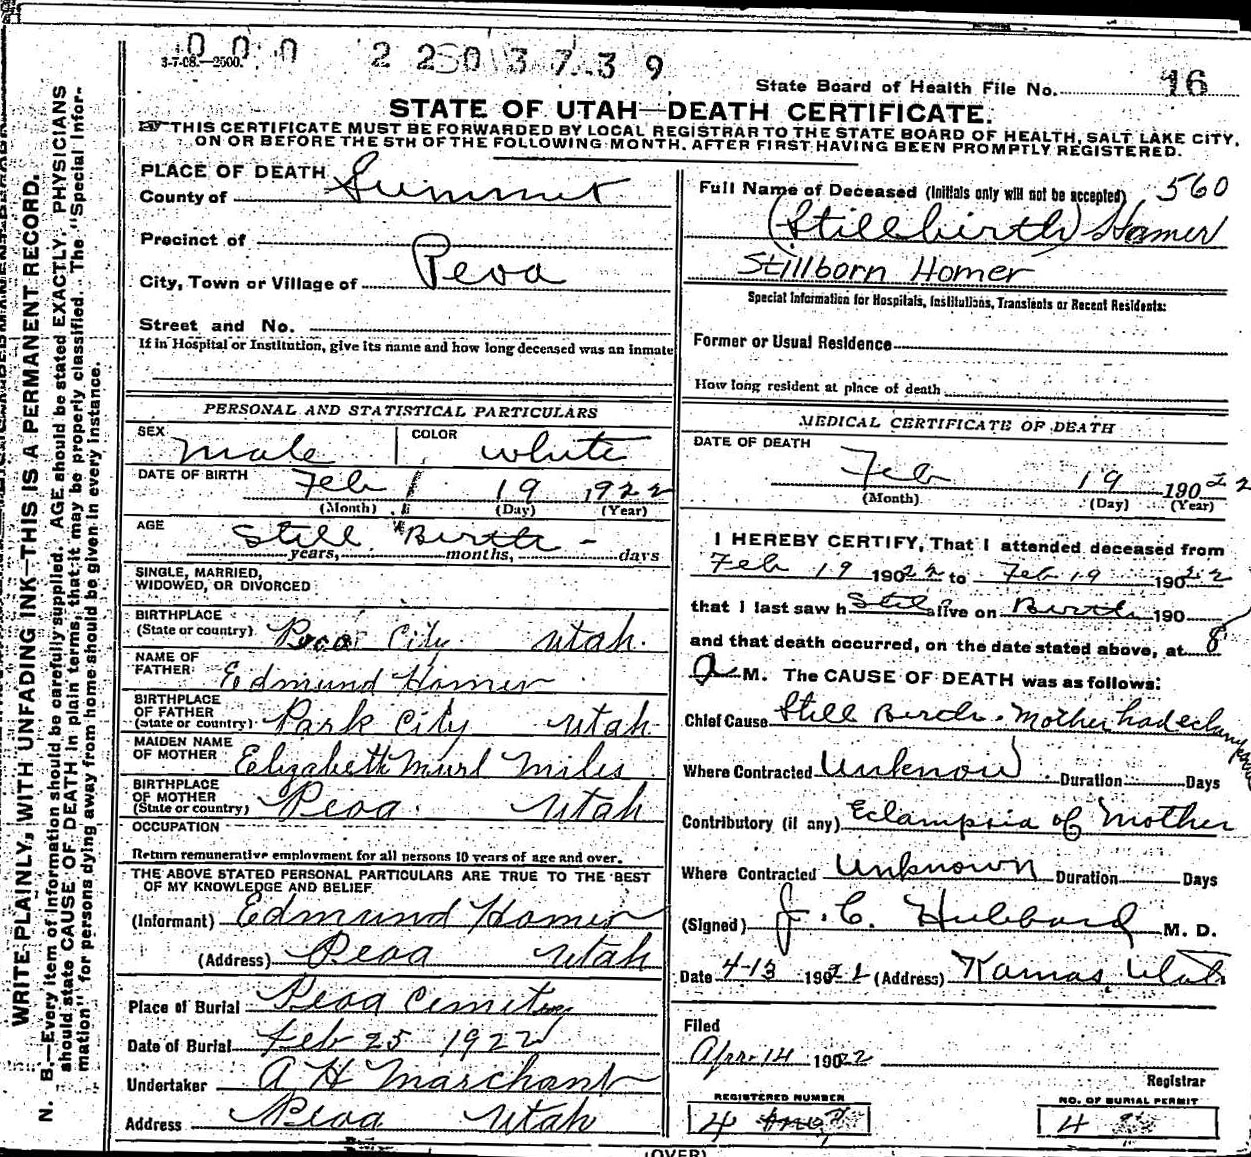 000 2203739
3-7-08.—2500.
State Board of Health File No. 16
STATE OF UTAH—DEATH CERTIFICATE.
THIS CERTIFICATE MUST BE FORWARDED BY LOCAL REGISTRAR TO THE STATE BOARD OF HEALTH, SALT LAKE CITY,
ON OR BEFORE THE 5TH OF THE FOLLOWING MONTH, AFTER FIRST HAVING BEEN PROMPTLY REGISTERED.
WRITE PLAINLY, WITH UNFADING INK—THIS IS A PERMANENT RECORD.
N. B.—Every item of information should be carefully supplied. AGE should be stated EXACTLY. PHYSICIANS
should state CAUSE OF DEATH in plain terms, that it may be properly classified. The "Special Infor-
mation" for persons dying away from home should be given in every instance.
PLACE OF DEATH
County of Summit
Precinct of
City, Town or Village of Peoa
Street and No.
If in Hospital or Institution, give its name and how long deceased was an inmate
PERSONAL AND STATISTICAL PARTICULARS
SEX Male COLOR White
DATE OF BIRTH Feb 19 1922
(Month) (Day) (Year)
AGE Still Birth -
years, months, days
SINGLE, MARRIED,
WIDOWED, OR DIVORCED
BIRTHPLACE
(State or country) City Utah.
NAME OF
FATHER Edmund Homer
BIRTHPLACE
OF FATHER
(State or country) Park City Utah
MAIDEN NAME
OF MOTHER Elizabeth Murl Miles
BIRTHPLACE
OF MOTHER
(State or country) Peoa. Utah
OCCUPATION
Return remunerative employment for all persons 10 years of age and over.
THE ABOVE STATED PERSONAL PARTICULARS ARE TRUE TO THE BEST
OF MY KNOWLEDGE AND BELIEF
(Informant) Edmund Homer
(Address) Peoa Utah
Place of Burial Peoa Cemetery
Date of Burial Feb 25 1922
Undertaker A H Marchant
Address Peoa Utah
Full Name of Deceased (Initials only will not be accepted) 560
(Stillbirth) Homer
Stillborn Homer
Special Information for Hospitals, Institutions, Transients or Recent Residents:
Former or Usual Residence
How long resident at place of death
MEDICAL CERTIFICATE OF DEATH
DATE OF DEATH
Feb 19 19022
(Month) (Day) (Year)
I HEREBY CERTIFY, That I attended deceased from
Feb 19 19022 to Feb 19 19022
that I last saw h Still alive on Birth 190
and that death occurred, on the date stated above, at 8
a M. The CAUSE OF DEATH was as follows:
Chief Cause Still Birth. Mother had eclampsia
Where Contracted Unknown Duration Days
Contributory (if any) Eclampsia of Mother
Where Contracted Unknown Duration Days
(Signed) J. C. Hubbard M. D.
Date 4-13 19022 (Address) Kamas, Utah
Filed
Apr 14 19022
Registrar
REGISTERED NUMBER
4
NO. OF BURIAL PERMIT
4
(OVER)